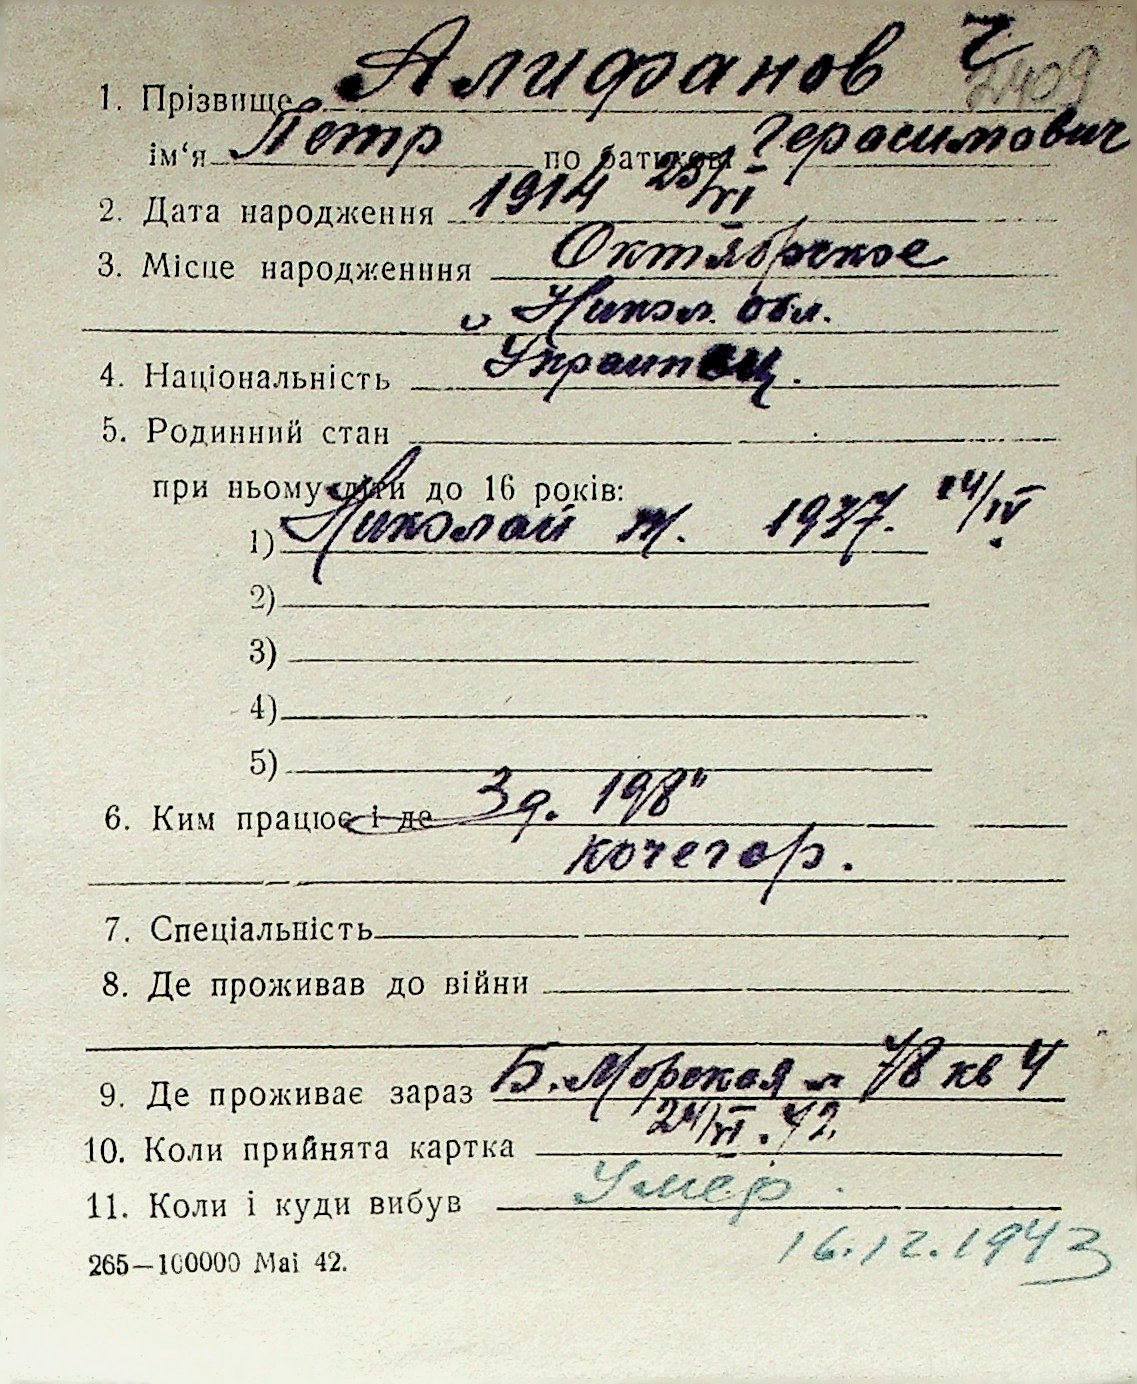 1. Прізвище Алифанов Ч
2409
ім‘я Петр по батькові Герасимович
2. Дата народження 1914 23/VI
3. Місце народженння Октябрское
Никол. обл.
4. Національність Украинец.
5. Родинний стан
при ньому діти до 16 років:
1) Николай м. 1937. 24/IV
2)
3)
4)
5)
6. Ким працює і де Зд. 198"
кочегар.
7. Спеціальність
8. Де проживав до війни
9. Де проживає зараз Б. Морская 78 кв 4
10. Коли прийнята картка 24/VI. 42.
11. Коли і куди вибув Умер.
16.12.1943
265—100000 Mai 42.